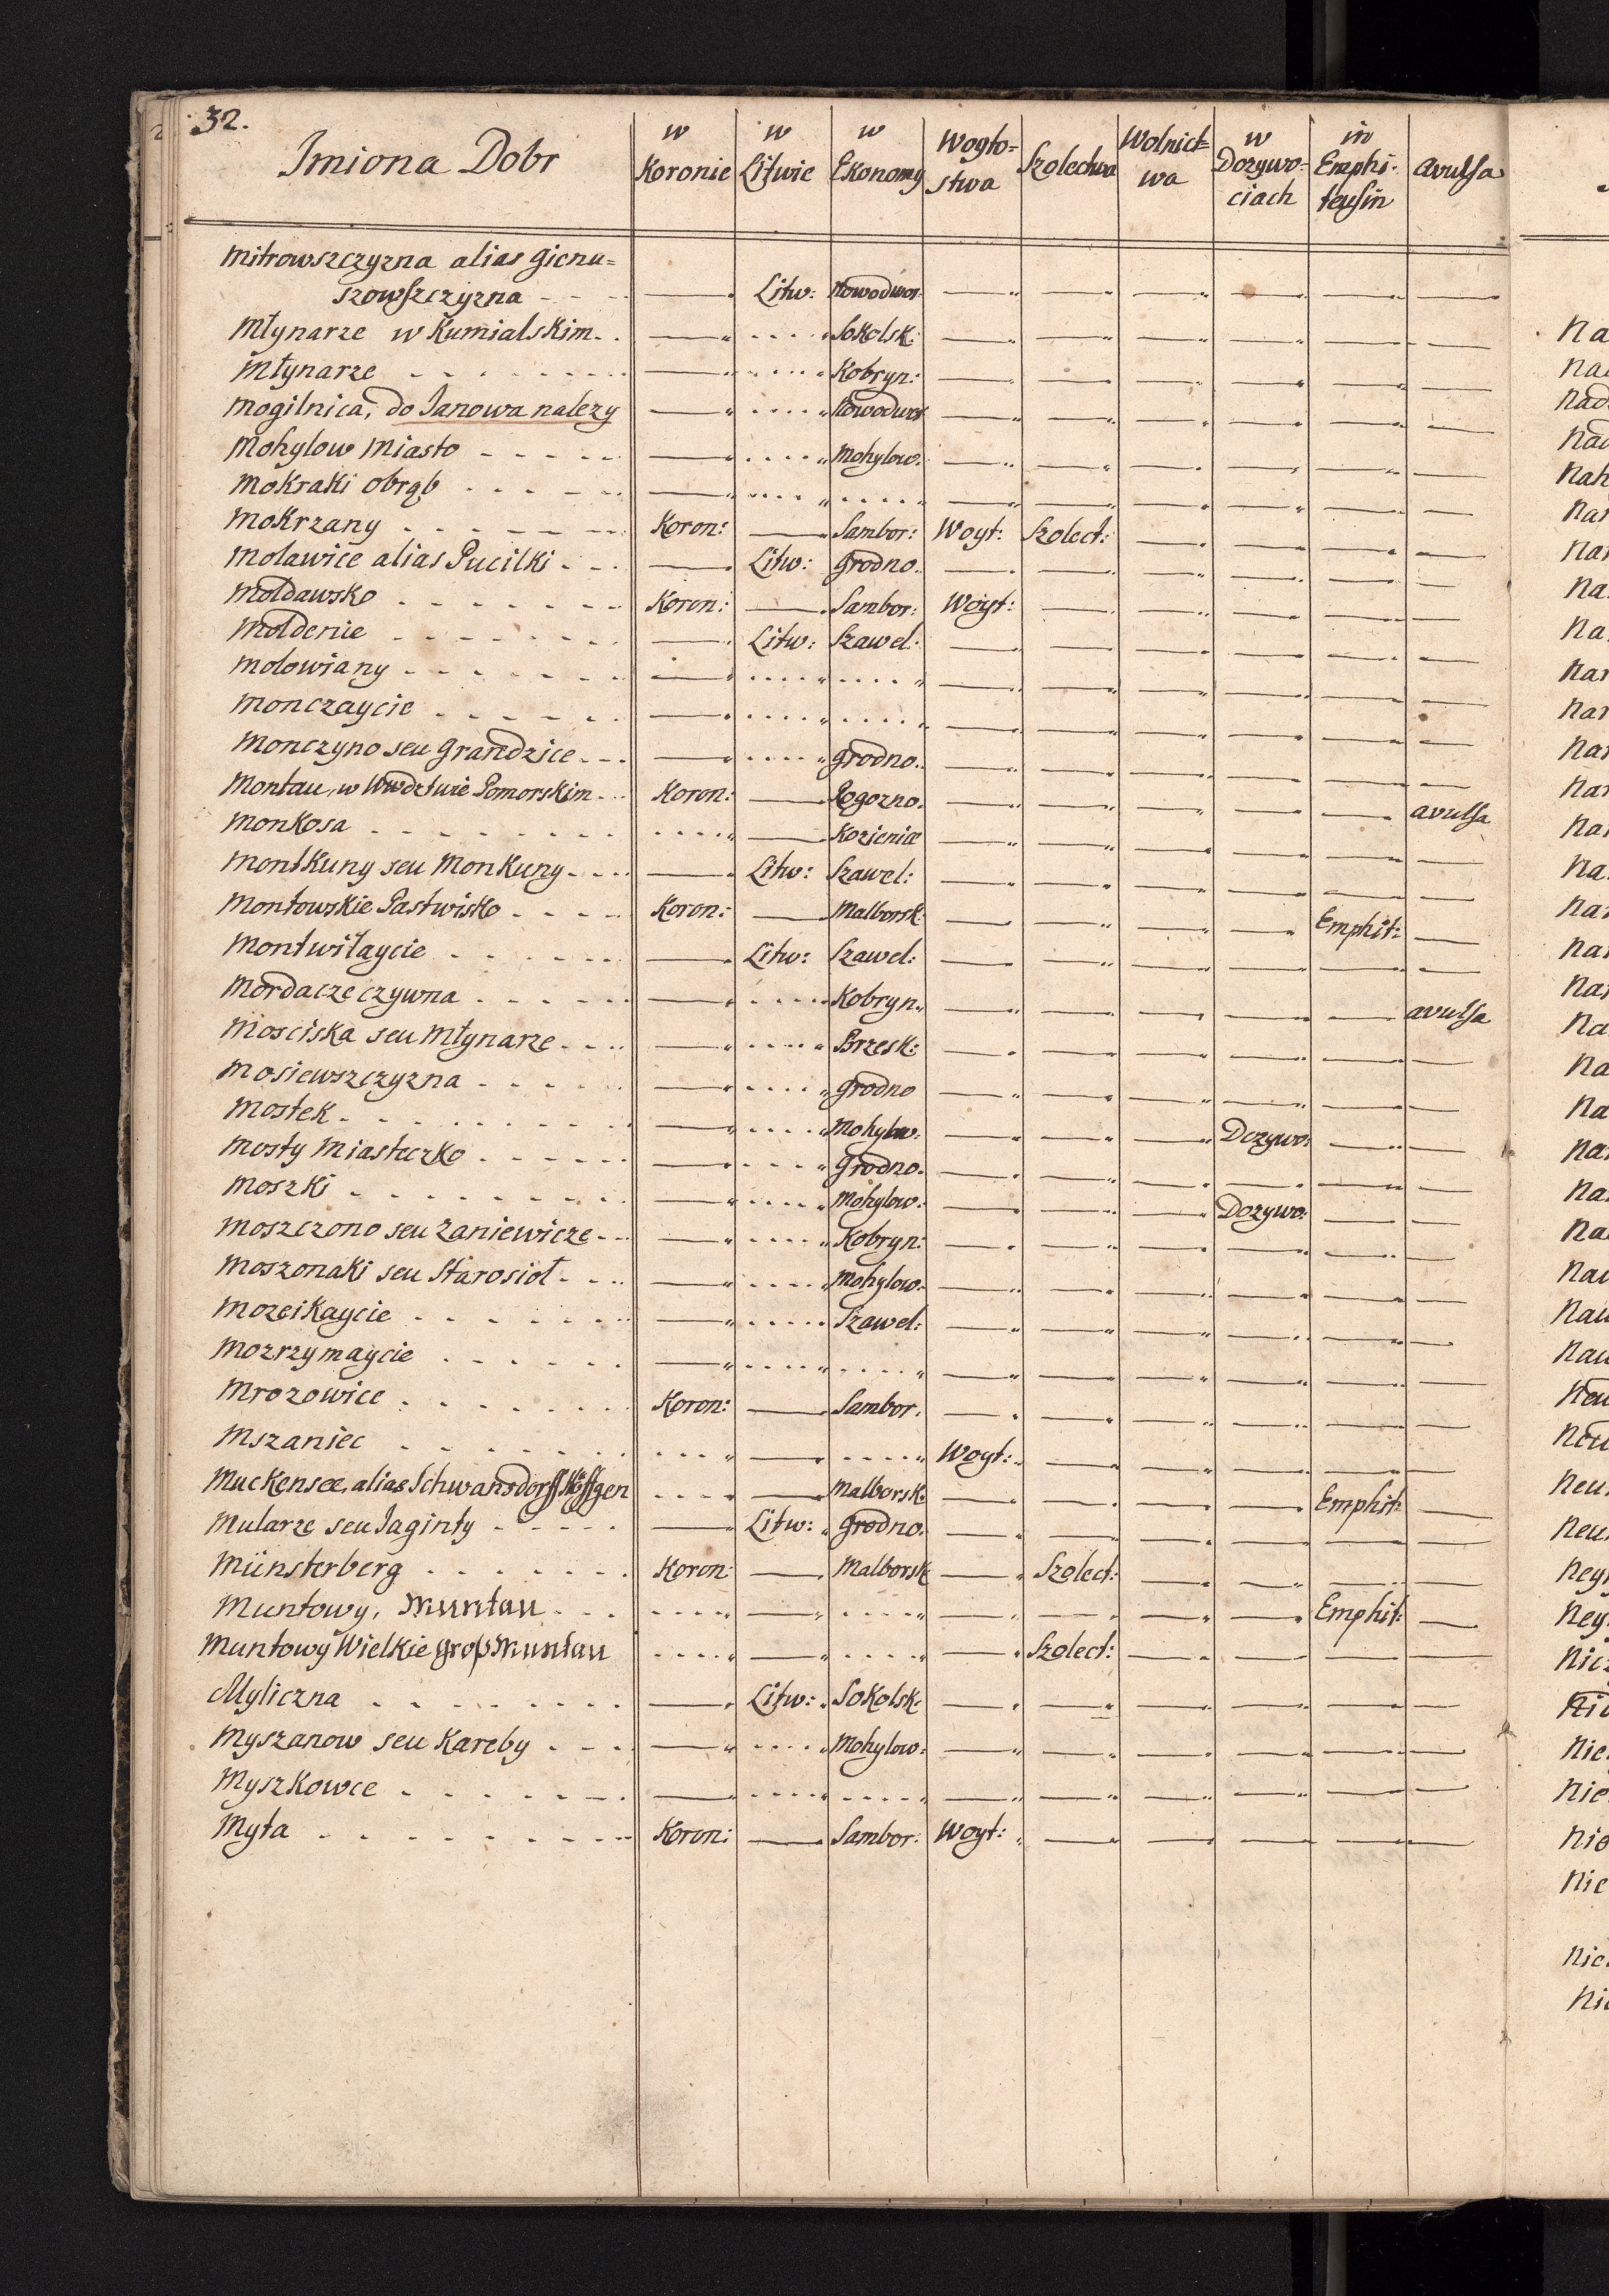 32.
Imiona Dobr | w Koronie | w Litwie | w Ekonomy | Woyto=stwa | Szolectwa | Wolnict=wa | w Dozywo=ciach | in Emphi=teusin | avulsa
Mitrowszczyzna alias Gienu=
szowszczyzna - - - | — | Litw: | Nowodwor: | — | — | — | — | — | —
Młynarze w Kumialskim - - | — | - - - - " | Sokolsk: | — | — | — | — | — | —
Młynarze - - - - | — | - - - - " | Kobryn: | — | — | — | — | — | —
Mogilnica, do Janowa nalezy | — | - - - - " | Nowodwor | — | — | — | — | — | —
Mohylow Miasto - - - - | — | - - - - " | Mohylow: | — | — | — | — | — | —
Mokraki obrąb - - - - | — | - - - - " | - - - - " | — | — | — | — | — | —
Mokrzany - - - - | Koron: | — | Sambor: | Woyt: | Szolect: | — | — | — | —
Molawice alias Pucilki - - - | — | Litw: | Grodno. | — | — | — | — | — | —
Moldawsko - - - - | Koron: | — | Sambor: | Woyt: | — | — | — | — | —
Moldenie - - - - | — | Litw: | Szawel: | — | — | — | — | — | —
Molowiany - - - - | — | - - - - " | - - - - " | — | — | — | — | — | —
Monczaycie - - - - | — | - - - - " | - - - - " | — | — | — | — | — | —
Monczyno seu Grandzice - - - | — | - - - - " | Grodno. | — | — | — | — | — | —
Montau, w Wwdztwie Pomorskim - - | Koron: | — | Rogozno. | — | — | — | — | — | avulsa
Monkosa - - - - | - - - - " | — | Kozienic | — | — | — | — | — | —
Montkuny seu Monkuny - - - | — | Litw: | Szawel: | — | — | — | — | — | —
Montowskie Pastwisko - - - - | Koron: | — | Malborsk: | — | — | — | — | Emphit: | —
Montwiłaycie - - - - | — | Litw: | Szawel: | — | — | — | — | — | —
Mordacze czywna - - - - | — | - - - - " | Kobryn. | — | — | — | — | — | avulsa
Mosciska seu Młynarze - - - | — | - - - - " | Brzesk: | — | — | — | — | — | —
Mosiewszczyzna - - - - | — | - - - - " | Grodno | — | — | — | — | — | —
Mostek - - - - | — | - - - - " | Mohylow: | — | — | — | Dozywo: | — | —
Mosty Miasteczko - - - - | — | - - - - " | Grodno. | — | — | — | — | — | —
Moszki - - - - | — | - - - - " | Mohylow: | — | — | — | Dozywo: | — | —
Moszczono seu Zaniewicze - - | — | - - - - " | Kobryn: | — | — | — | — | — | —
Moszonaki seu Starosioł - - - | — | - - - - " | Mohylow: | — | — | — | — | — | —
Mozeikaycie - - - - | — | - - - - " | Szawel: | — | — | — | — | — | —
Mozrzymaycie - - - - | — | - - - - " | - - - - " | — | — | — | — | — | —
Mrozowice - - - - | Koron: | — | Sambor. | — | — | — | — | — | —
Mszaniec - - - - | - - - - " | — | - - - - " | Woyt: | — | — | — | — | —
Muckensee, alias Schwansdorff Höffgen | - - - - " | — | Malborsk: | — | — | — | — | Emphit: | —
Mularze seu Jaginty - - - - | — | Litw: " | Grodno. | — | — | — | — | — | —
Münsterberg - - - - | Koron: | — | Malborsk | — | Szolect: | — | — | — | —
Muntowy, Muntau - - - | - - - - " | — | - - - - " | — | — | — | — | Emphit: | —
Muntowy Wielkie Groß Muntau | - - - - " | — | - - - - " | — | Szolect: | — | — | — | —
Myliczna - - - - | — | Litw: " | Sokolsk: | — | — | — | — | — | —
Myszanow seu Kareby - - - | — | - - - - " | Mohylow: | — | — | — | — | — | —
Myszkowce - - - - | — | - - - - " | - - - - " | — | — | — | — | — | —
Myta - - - - | Koron: | — | Sambor: | Woyt: | — | — | — | — | —